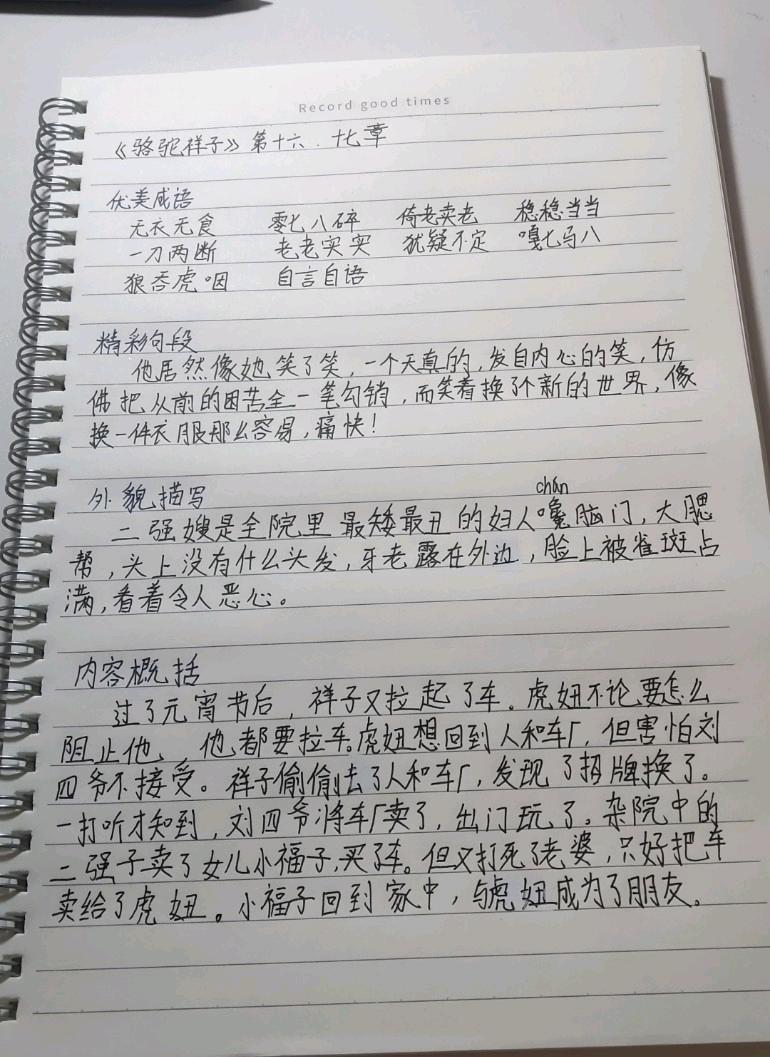 Record good times
《骆驼祥子》第十六.十七章
优美成语
无衣无食 零七八碎 倚老卖老 稳稳当当
一刀两断 老老实实 犹疑不定 嘎七马八
狼吞虎咽 自言自语
精彩句段
他居然像她笑了笑，一个天真的，发自内心的笑，仿
佛把从前的困苦全一笔勾销，而笑着换了个新的世界，像
换一件衣服那么容易，痛快！
外貌描写
chán
二强嫂是全院里最矮最丑的妇人嚵脑门，大腮
帮，头上没有什么头发，牙老露在外边，脸上被雀斑占
满，看着令人恶心。
内容概括
过了元宵节后，祥子又拉起了车。虎妞不论要怎么
阻止他、他都要拉车。虎妞想回到人和车厂，但害怕刘
四爷不接受。祥子偷偷去了人和车厂，发现了招牌换了。
一打听才知到，刘四爷将车厂卖了，出门玩了。杂院中的
二强子卖了女儿小福子，买了车。但又打死了老婆，只好把车
卖给了虎妞。小福子回到家中，与虎妞成为了朋友。